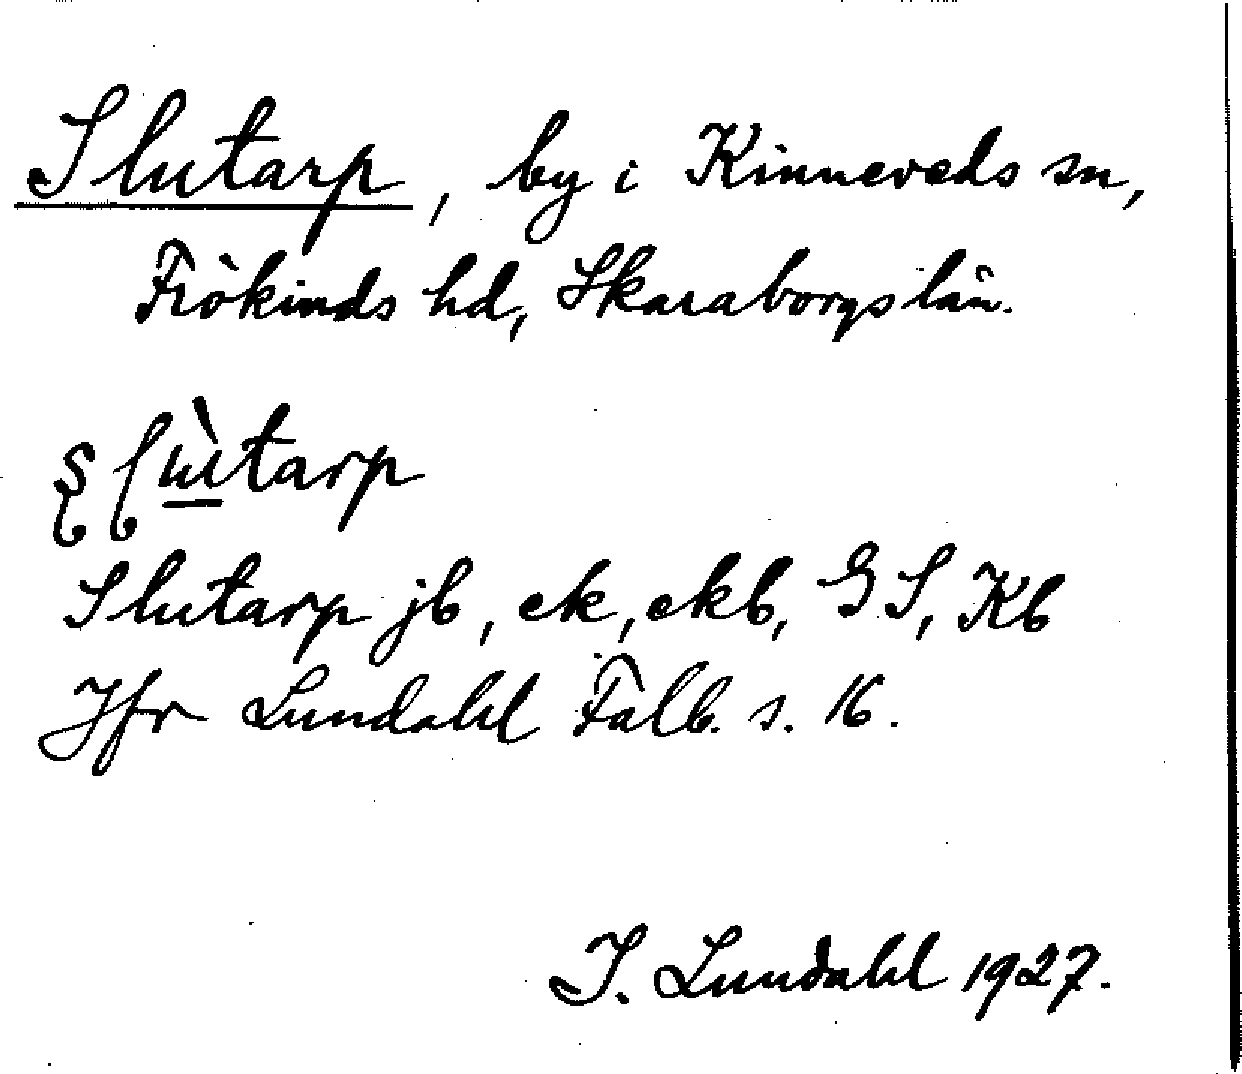 Slutarp, by i Kinneveds sn,
Frökinds hd, Skaraborgs län.
Slutarp jb, ek, ekb, GS, Kb
Jfr Lundahl Falb. s. 16.
I. Lundahl 1927.